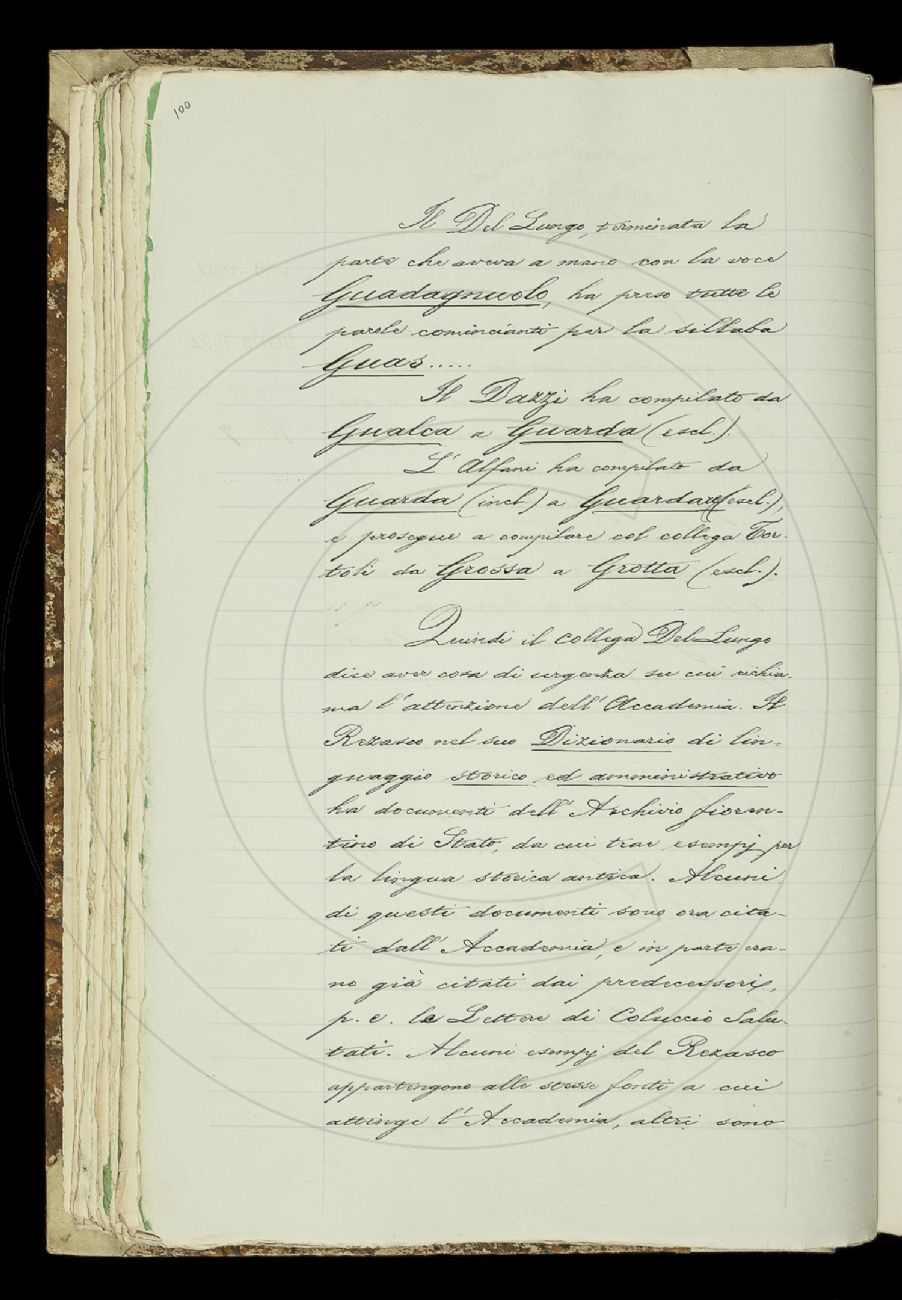 100
Il Del Lungo, terminata la
parte che aveva a mano con la voce
Guadagnuolo, ha preso tutte le
parole comincianti per la sillaba
Guas.....
Il Dazzi ha compilato da
Gualca a Guarda (escl.).
L' Alfani ha compilato da
Guarda (incl.) a (escl.),
e prosegue a compilare col collega Tor-
toli da Grossa a Grotta (escl.).
Quindi il collega Del Lungo
dice aver cosa di urgenza su cui richia-
ma l' attenzione dell' Accademia. Il
Rezasco nel suo Dizionario di lin-
guaggio storico ed amministrativo
ha documenti dell' Archivio fioren-
tino di Stato, da cui trae esempj per
la lingua storica antica. Alcuni
di questi documenti sono ora cita-
ti dall' Accademia, e in parte era-
no già citati dai predecessori,
p. e. le Lettere di Coluccio Salu-
tati. Alcuni esempj del Rezasco
appartengono alle stesse fonti a cui
attinge l' Accademia, altri sono